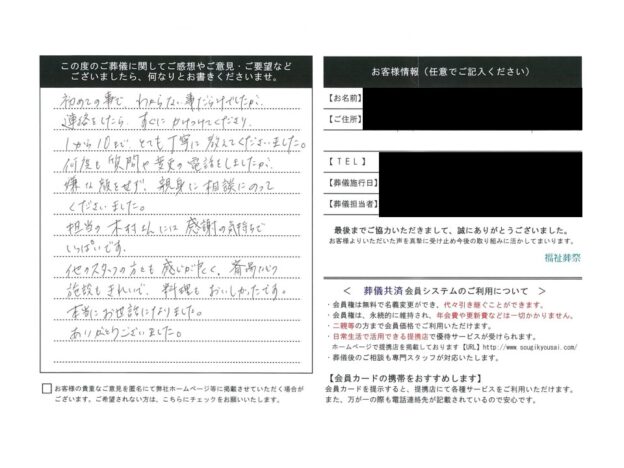 この度のご葬儀に関してご感想やご意見・ご要望など
ございましたら、何なりとお書きくださいませ。
初めての事で わからない事だらけでしたが、
連絡をしたら、すぐに かけつけてくださり、
1から10まで、とても 丁寧に 教えてくださいました。
何度も 質問や 変更の 電話をしましたが、
嫌な顔をせず、親身に 相談にのって
くださいました。
担当の 木村さんには 感謝の気持ちで
いっぱいです。
他のスタッフの方々も 感じが良く、
施設もきれいで、料理も おいしかったです。
本当にお世話になりました。
ありがとうございました。
お客様の貴重なご意見を匿名にて弊社ホームページ等に掲載させていただく場合が
ございます。ご希望されない方は、こちらにチェックをお願いいたします。
お客様情報（任意でご記入ください）
【お名前】
【ご住所】
【ＴＥＬ】
【葬儀施行日】
【葬儀担当者】
最後までご協力いただきまして、誠にありがとうございました。
お客様よりいただいた声を真摯に受け止め今後の取り組みに活かしてまいります。
福祉葬祭
＜ 葬儀共済 会員システムのご利用について ＞
・会員権は無料で名義変更ができ、代々引き継ぐことができます。
・会員権は、永続的に維持され、年会費や更新費などは一切かかりません。
・二親等の方まで会員価格でご利用いただけます。
・日常生活で活用できる提携店で優待サービスが受けられます。
ホームページで提携店を掲載しております【URL】http://www.sougikyousai.com/
・葬儀後のご相談も専門スタッフが対応いたします。
【会員カードの携帯をおすすめします】
会員カードを提示すると、提携店にて各種サービスをご利用いただけます。
また、万が一の際も電話連絡先が記載されているので安心です。